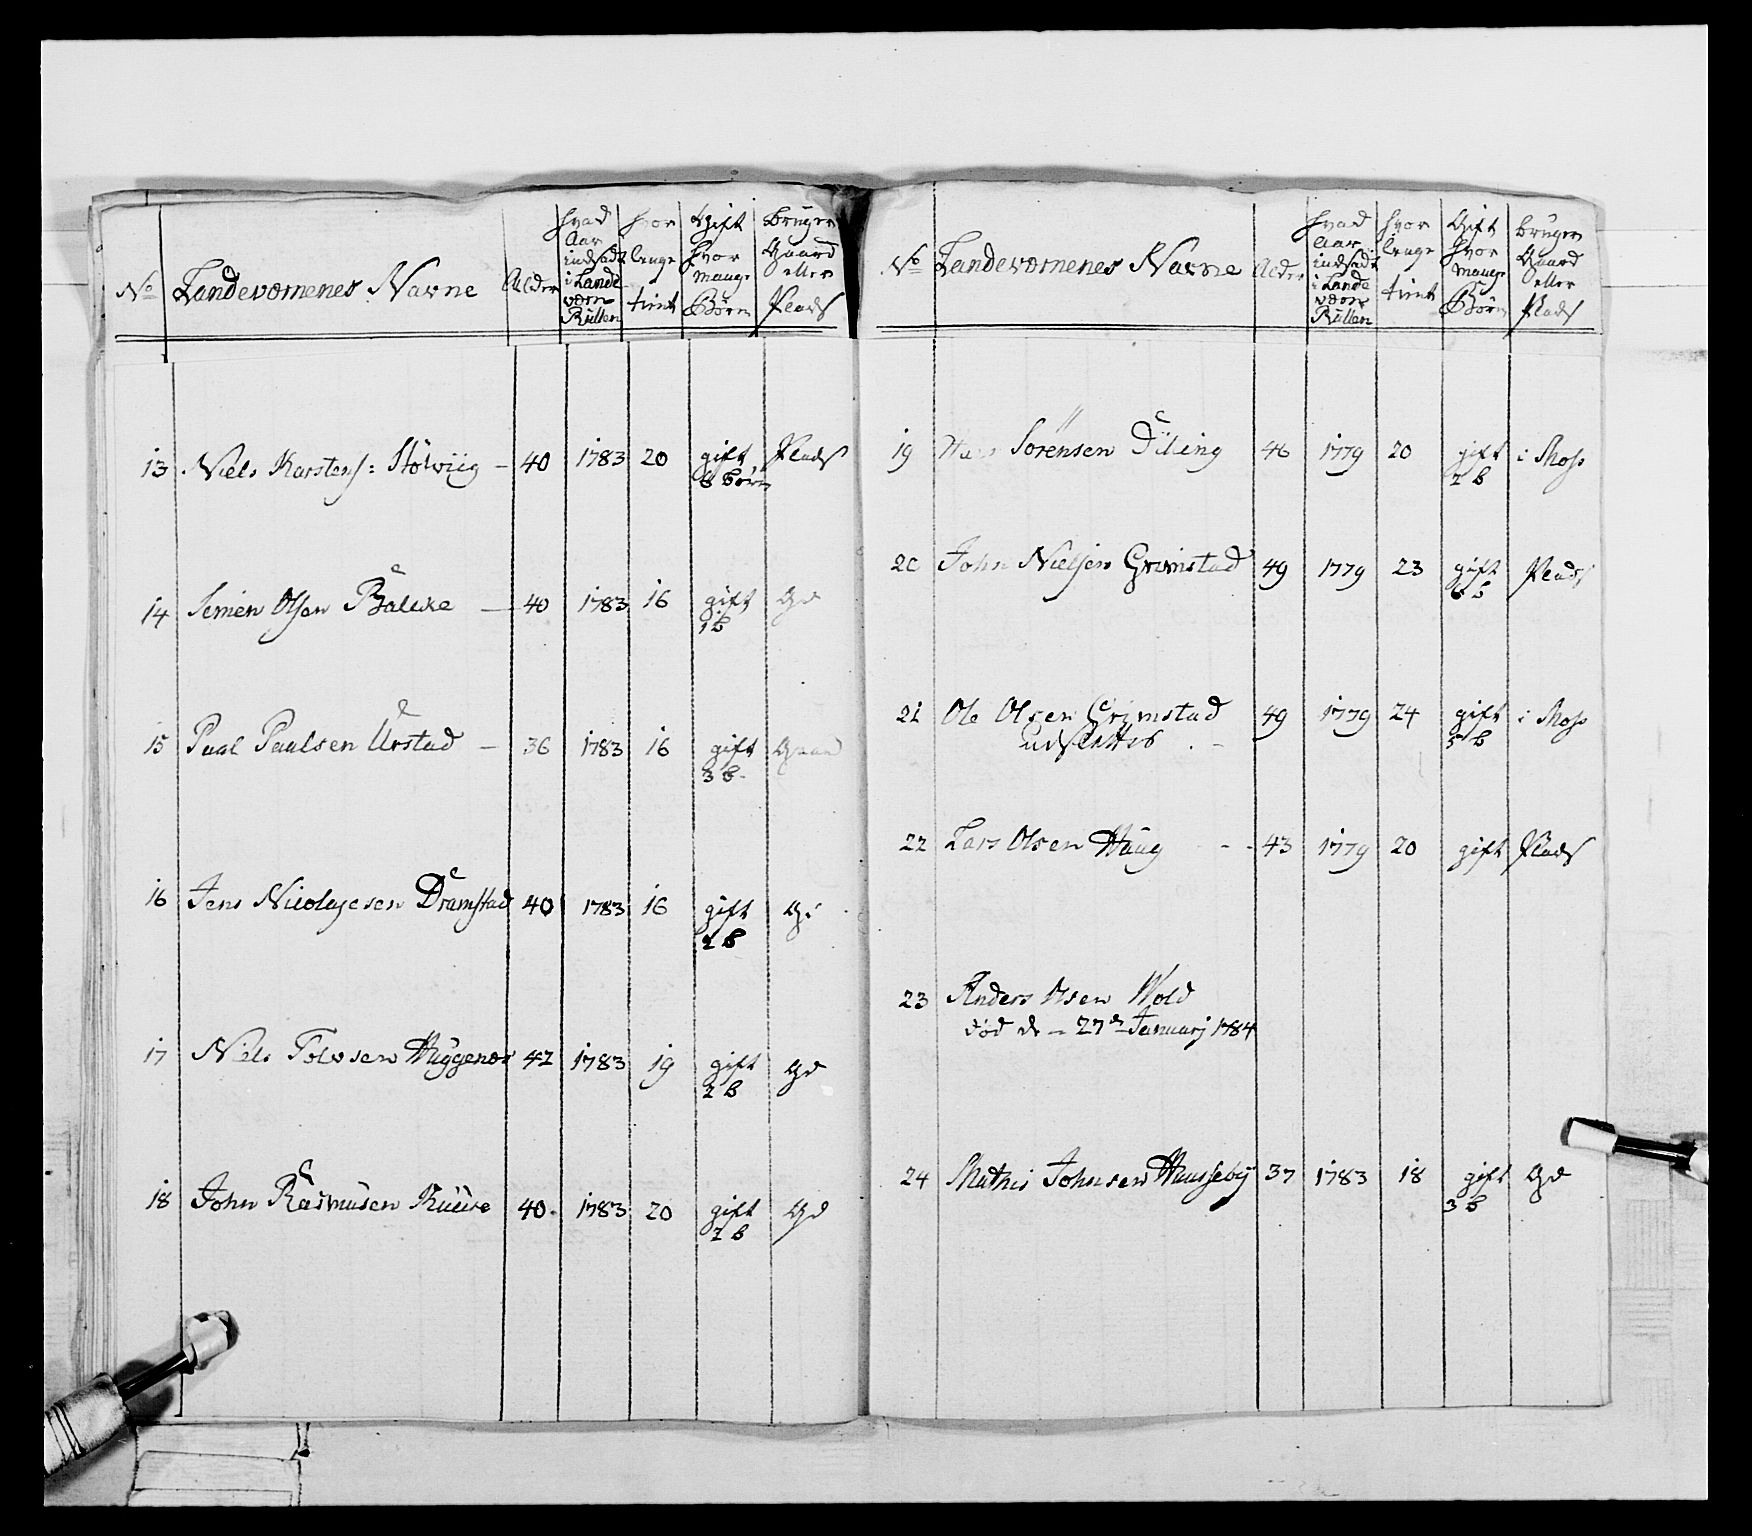 No Landeværnenes Navne Alder hvad Aar indsadt i Lande værn Rullen hvor lenge tient Gift hvor mange Börn bruger Gaard eller Plads
13 Niels Karstens: Stölviig - 40 1783 20 gift Plads
8 börn
14 Semen Olsen Balcke - 40 1783 16 gift Gd
1 b
15 Paal Paulsen Urstad - 36 1783 16 gift Gaard
3 b.
16 Jens Nicolaysen Dramstad 40 1783 16 gift Gd
2 b
17 Niels Tolvsen Huggenes 42 1783 19 gift Gd
2 b
18 John Rasmusen Ruwe 40. 1783 20 gift Gd
2 b
No Landeværnenes Navne Alder hvad Aar indsadt i Lande værn Rullen hvor lenge tient Gift hvor mange Börn bruger Gaard eller Plads
19 Hans Sörensen Diling 46 1779 20 gift i Moss
2 b
20 John Nielsen Grimstad 49 1779 23 gift Plads
6 b
21 Ole Olsen Grimstad 49 1779 24 gift i Moss
udslettes . - 5 b
22 Lars Olsen Haug - - 43 1779 20 gift Plads
23 Anders Olsen Wold
död d - 27de Januarj 1784
24 Mathis Johnsen Hausseby 37 1783 18 gift Gd
3 b